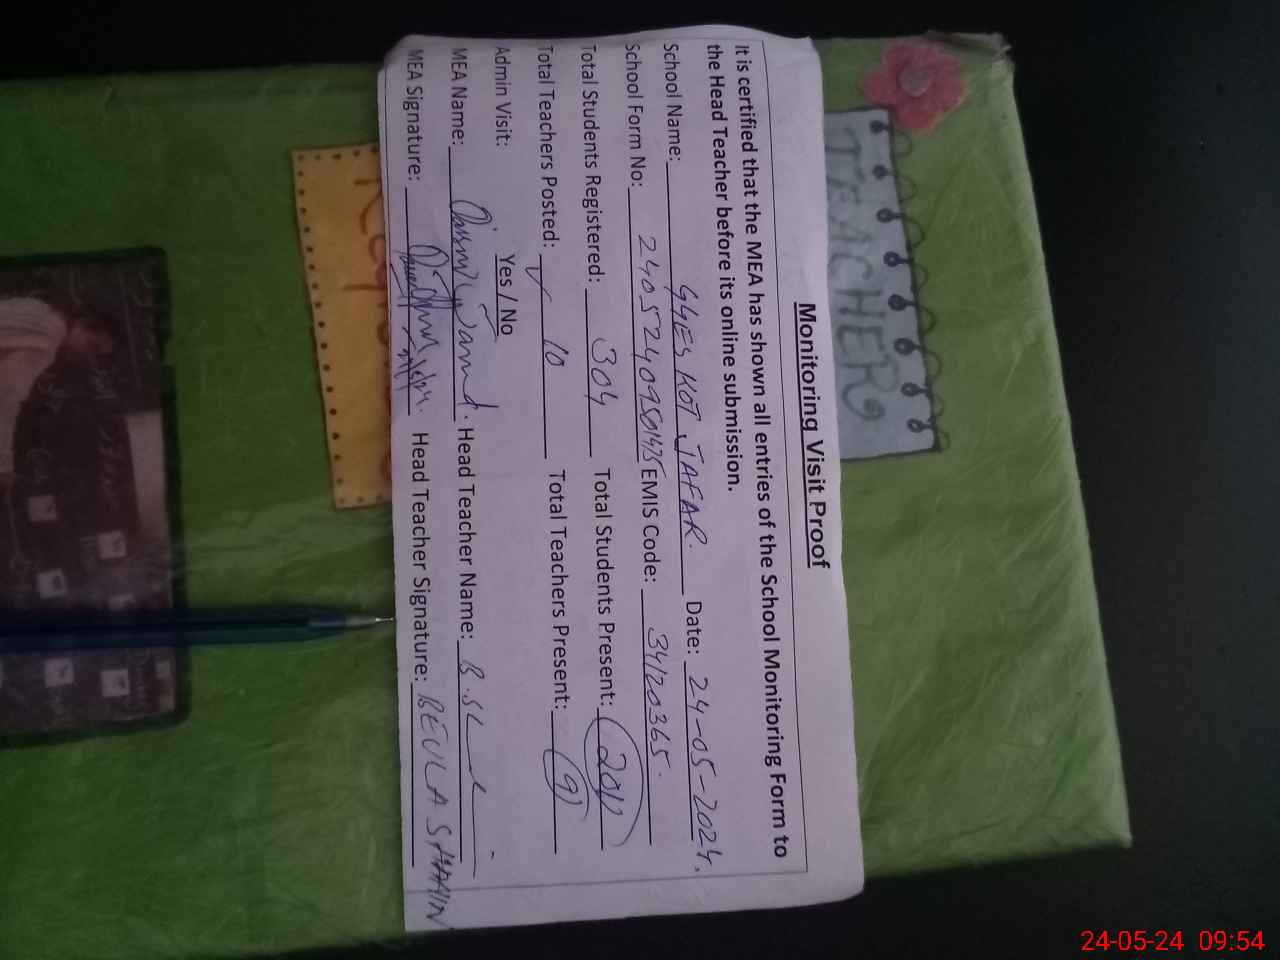 TEACHER
Monitoring Visit Proof
It is certified that the MEA has shown all entries of the School Monitoring Form to
the Head Teacher before its online submission.
School Name: GGES KOT JAFAR. Date: 24-05-2024.
School Form No: EMIS Code: 34120365.
Total Students Registered: 304 Total Students Present:
Total Teachers Posted: 10 Total Teachers Present: 9
Admin Visit: Yes / No
MEA Name: Head Teacher Name:
MEA Signature: Head Teacher Signature: BEULA
24-05-24 09:54